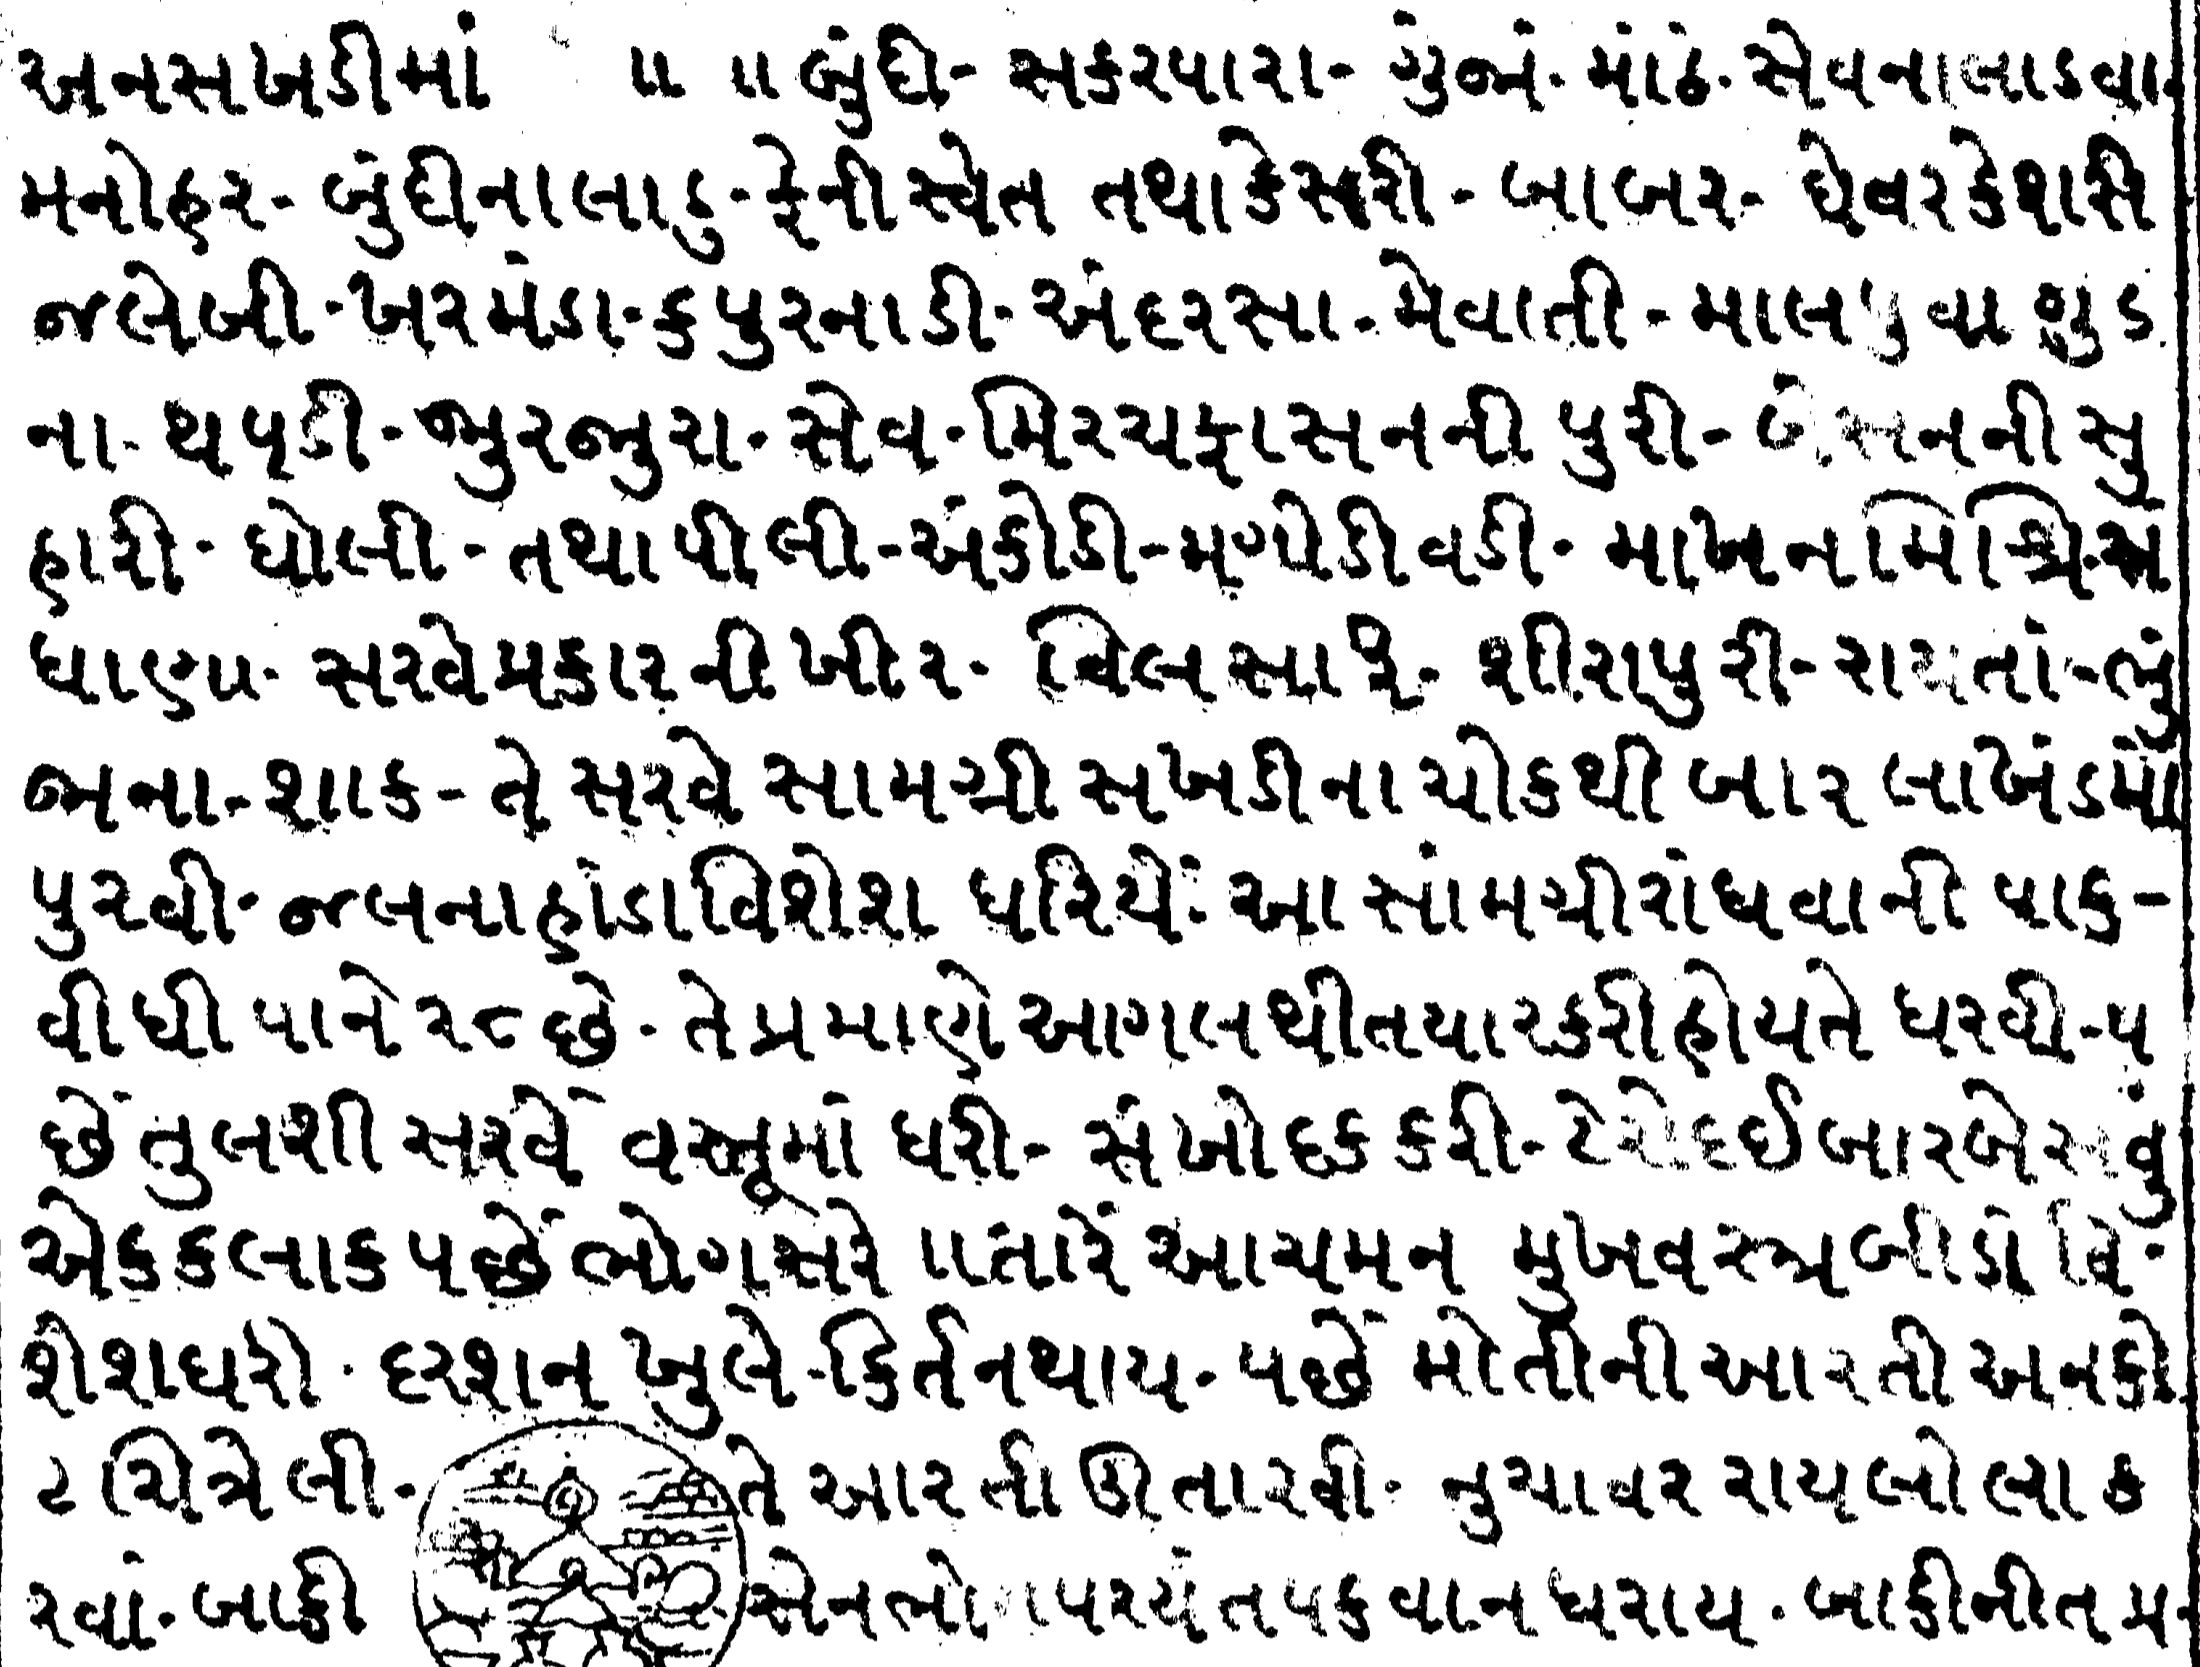 અનસખડીમાં ॥ ॥ બુંદી- સકરપારા- ગુંજાં. માંઠ. સેવનાલાડવા.
મનોહર- બુંદીનાલાડુ- ફેનીસ્વેત તથાકેસરી- બાબર- ઘેવરકેશરી
જલેબી. ખરમંડા. કપુરનાડી. અંદરસા. મેવાતી- માલપુવા ગુડ
ના- થપડી. ભુરભુરા. સેવ. મિરચફાસનની પુરી- બેસનનીસુ
હારી. ધોલી- તથાપીલી- અંકોડી- મગોડીવડી. માખનમિશ્રિ. અ
ધાણા. સરવેપ્રકારનીખીર. વિલસારૂ. શીરાપુરી- રાયતાં- ભું
જના- શાક- તે સરવે સામગ્રી સખડીનાચોકથી બારલાખંડમાં
પુરવી. જલનાહાંડાવિશેશ ધરિયેં. આ સાંમગ્રીરાંધવાની પાક-
વીધી પાને ૨૮ છે. તેપ્રમાણે આગલથીતયારકરીહોયતે ધરવી- પ
છેં તુલશી સરવેં વસ્તૂમાં ધરી- સંખોદકકરી- ટેરોદઈ બારબેસવું
એકકલાકપછેં ભોગસરે ॥ તારેં આચમન મુખવસ્ત્ર બીડાં વિ.
શેશધરી. દરશન ખુલે- કિર્તનથાય. પછેં મોતીનીઆરતી અનકો
ટચિત્રેલી. તે આરતી ઊતારવી. નુચાવર રાયલોલાક
રવાં. બાકી સેનભોગપરયંતપકવાનધરાય. બાકીનીતપ્ર